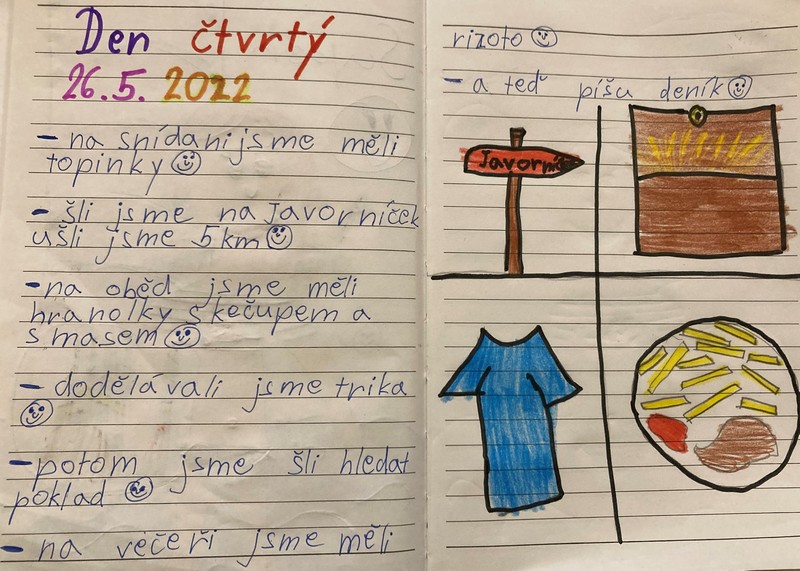 Den čtvrtý
26.5. 2022
- na snídani jsme měli
topinky
- šli jsme na Javorníček
ušli jsme 5km
- na oběd jsme měli
hranolky s kečupem a
s masem
- dodělávali jsme trika
- potom jsme šli hledat
poklad
- na večeři jsme měli
rizoto
- a teď píšu deník